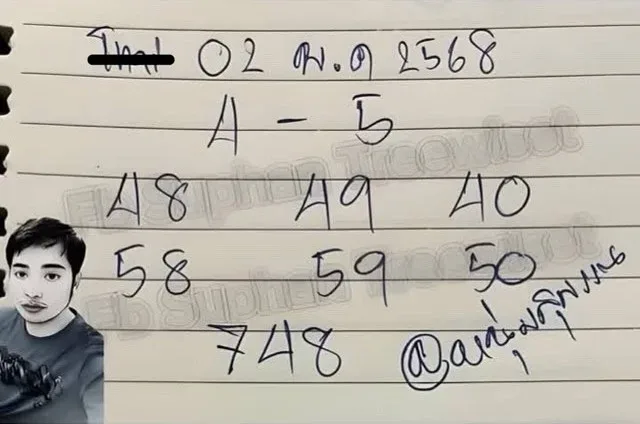 02 พ.ค 2568
4 - 5
48 49 40
58 59 50
748
@หนุ่มสุพรรณ
Fb Suphan Treewibet
Fb Suphan Treewibet